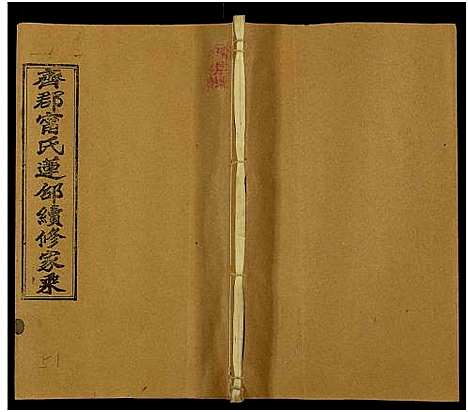 齊郡甯氏蓮邰續修家乘
51